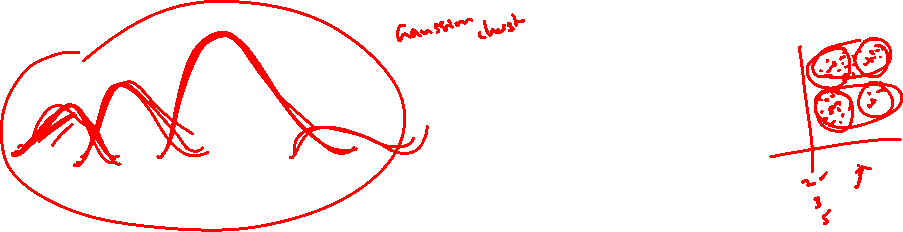 Gaussian
clust
2
3
5